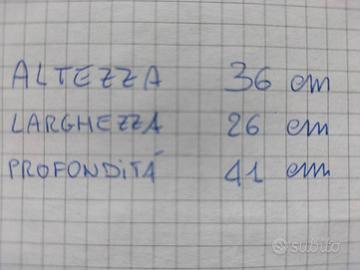 ALTEZZA 36 cm
LARGHEZZA 26 cm
PROFONDITÁ 41 cm
subito